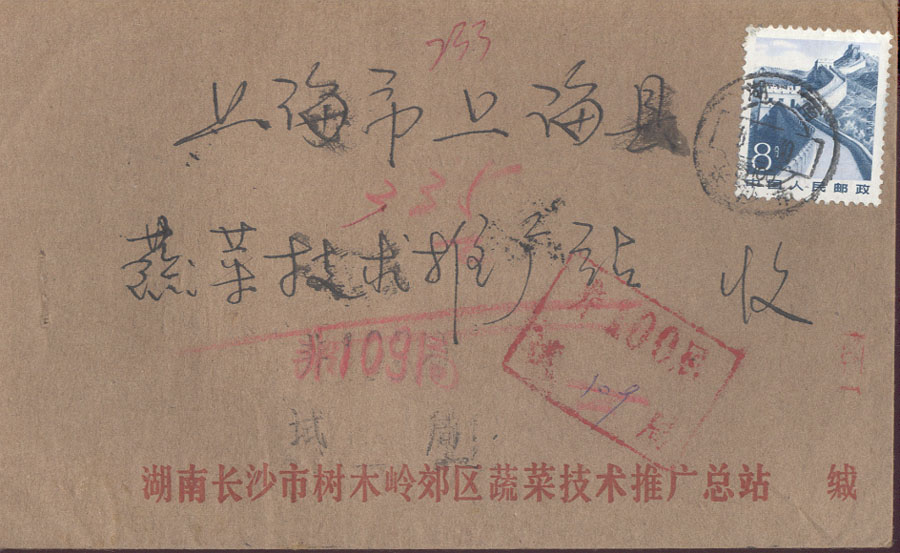 233
上海市上海县
8分
中国人民邮政
235
蔬菜技术推广站 收
非100局
试 109 局
非109局
试 局
湖南长沙市树木岭郊区蔬菜技术推广总站 缄